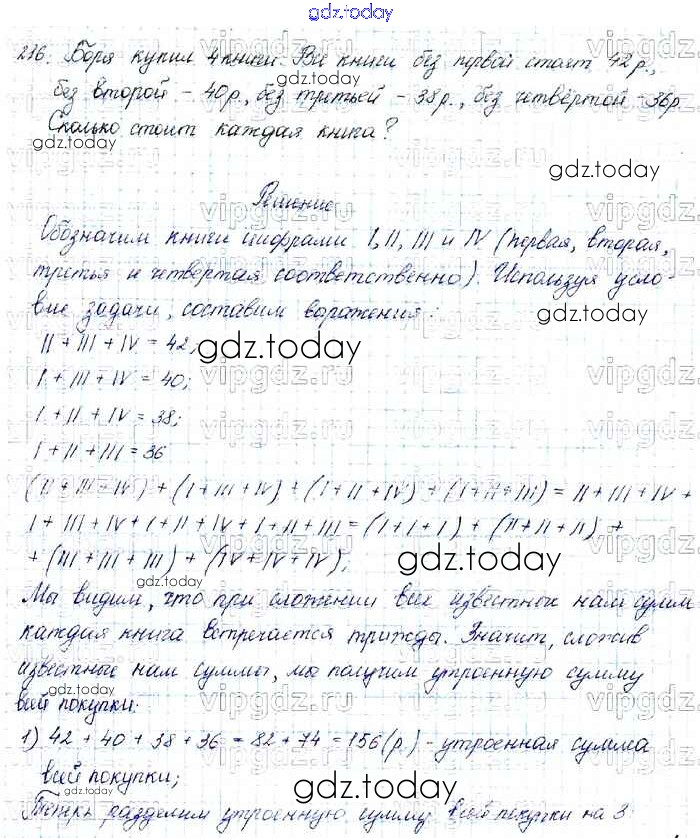 gdz.today
216. Боря купил 4 книги. Все книги без первой стоят 42 р.,
gdz.today
без второй - 40 р., без третьей - 38 р., без четвёртой - 36 р.
Сколько стоит каждая книга?
gdz.today
gdz.today
vipgdz.ru vipgdz.ru vipgdz.ru
Решение
Обозначим книги цифрами I, II, III и IV (первая, вторая,
третья и четвёртая соответственно). Используя усло-
вие задачи, составим выражения:
gdz.today
II + III + IV = 42;
gdz.today
I + III + IV = 40;
I + II + IV = 38;
I + II + III = 36
(II + III + IV) + (I + III + IV) + (I + II + IV) + (I + II + III) = II + III + IV +
I + III + IV + I + II + IV + I + II + III = (I + I + I) + (II + II + II) +
+ (III + III + III) + (IV + IV + IV);
gdz.today
gdz.today
Мы видим, что при сложении всех известных нам сумм
каждая книга встречается трижды. Значит, сложив
gdz.today
известные нам суммы, мы получим утроенную сумму
всей покупки:
1) 42 + 40 + 38 + 36 = 82 + 74 = 156 (р.) - утроенная сумма
всей покупки;
gdz.today
Теперь разделим утроенную сумму всей покупки на 3
gdz.today